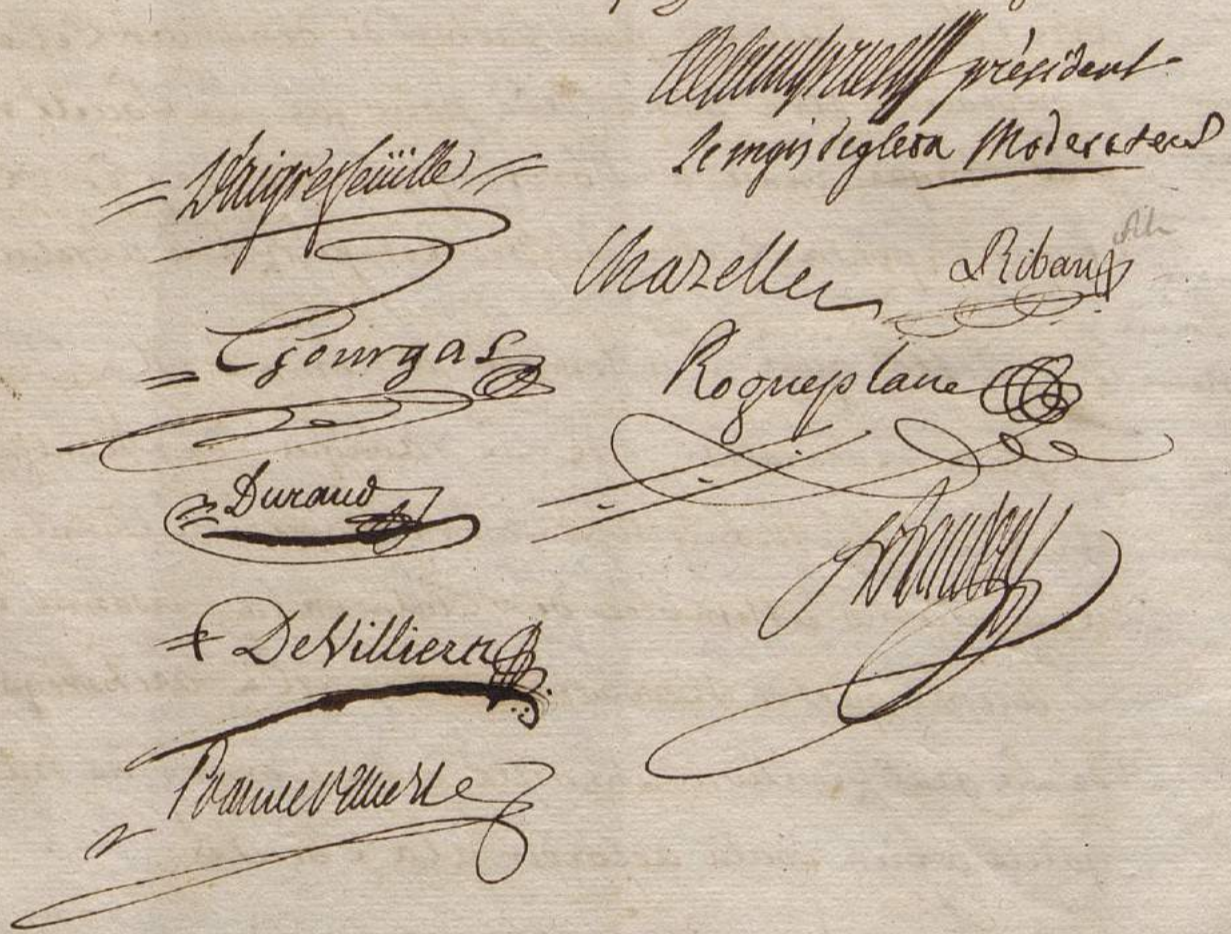 président
Le mqis deglesa Moderateur
D'aigrefeüille
Chazelles Ribaud fils
Gourgas
Roqueplane
Durand
DeVilliers
Bonnevallerie